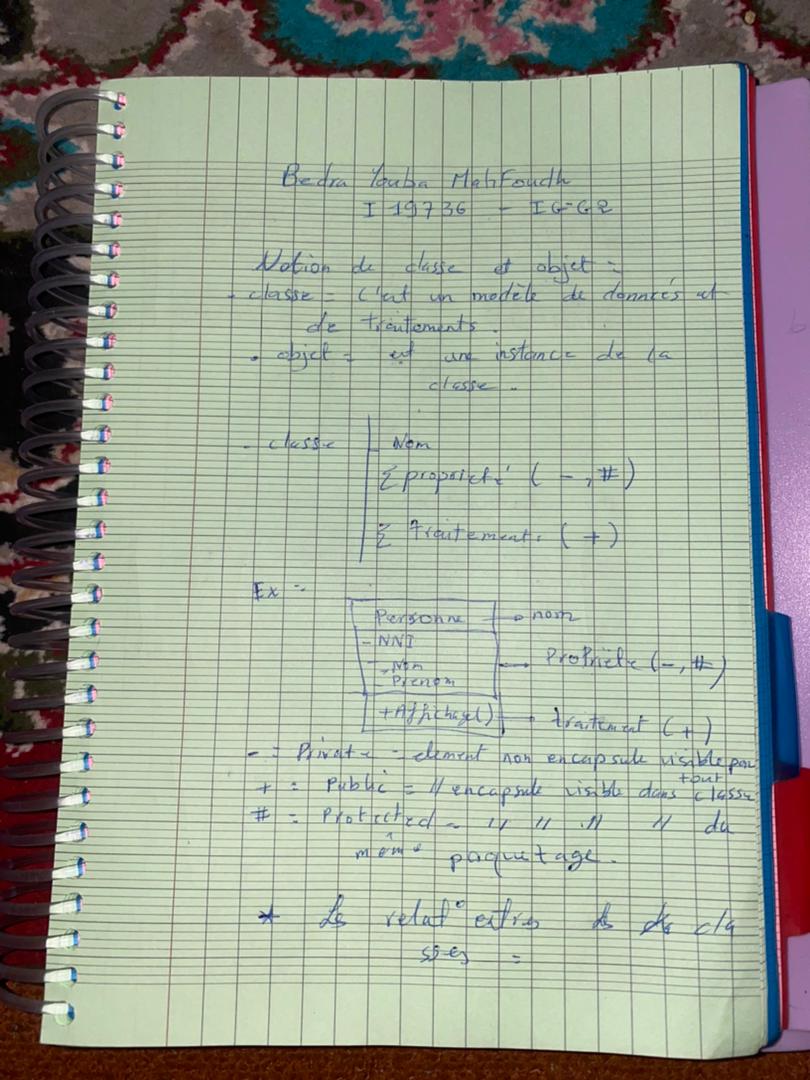 Bedra Youba Mahfoudh
I 19736 - IG-G2
Notion de classe et objet :
- classe = c'est un modèle de données et
de traitements.
• objet = est une instance de la
classe.
- classe
Nom
Σ propriété (-, #)
Σ traitement. (+)
Ex :
Personne → nom
- NNI
- Nom → Propriété (-, #)
- Prenom
+Affichage() → traitement (+)
- = Private = element non encapsule visible par
tout
+ = Public = // encapsule visible dans classe
# = Protected = // // // // du
même paquetage.
* Les relat° entres les cla
sses =